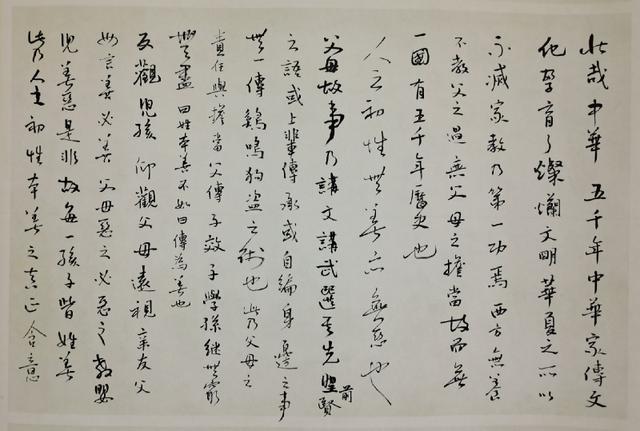 壯哉中華 五千年中華家傳文
化孕育了燦爛文明華夏之所以
不滅家教乃第一功焉西方無養
不教父之過無父母之擔當故而無
一國有五千年歷史也
人之初性無善亦無惡也
父母故事乃講文講武選吾先聖前賢
之語或上輩傳承或自編身邊之事
無一傳鷄鳴狗盜之術也此乃父母之
責任與擔當父傳子效子學孫繼無窮
無盡曰性本善不如曰傳為善也
反觀兒孩仰觀父母遠視亲友父
母言善必善父母惡之必惡之教嬰
兒善惡是非故每一孩子皆姓善
此乃人之初性本善之真正含意